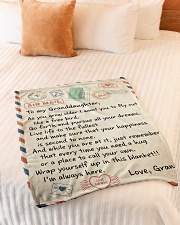 AIR MAIL
To my Granddaughter,
As you grow older, I want you to fly out
like a free bird.
Go forth and pursue all your dreams.
Live life to the fullest
and make sure that your happiness
is second to none.
And while you are at it, just remember
that every time you need a hug
or a place to call your own.
Wrap yourself up in this blanket!!!
I'm always here.
Love, Gran